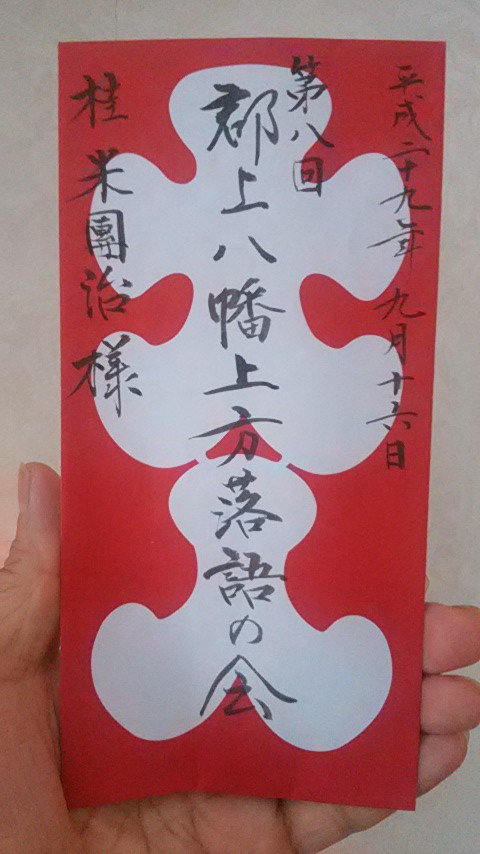 平成二十九年 九月十六日
第八回
郡上八幡上方落語の会
桂 米團治様